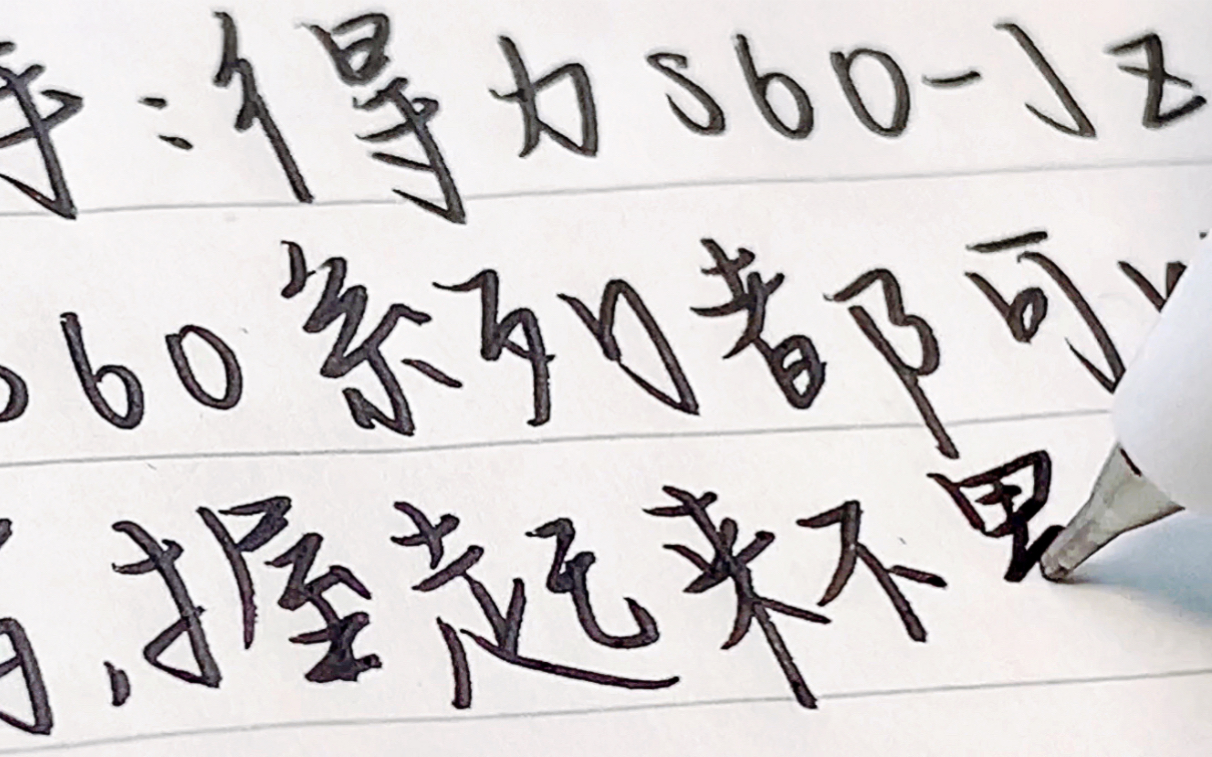 :得力S60-JZ
60系列都可
,握起来不